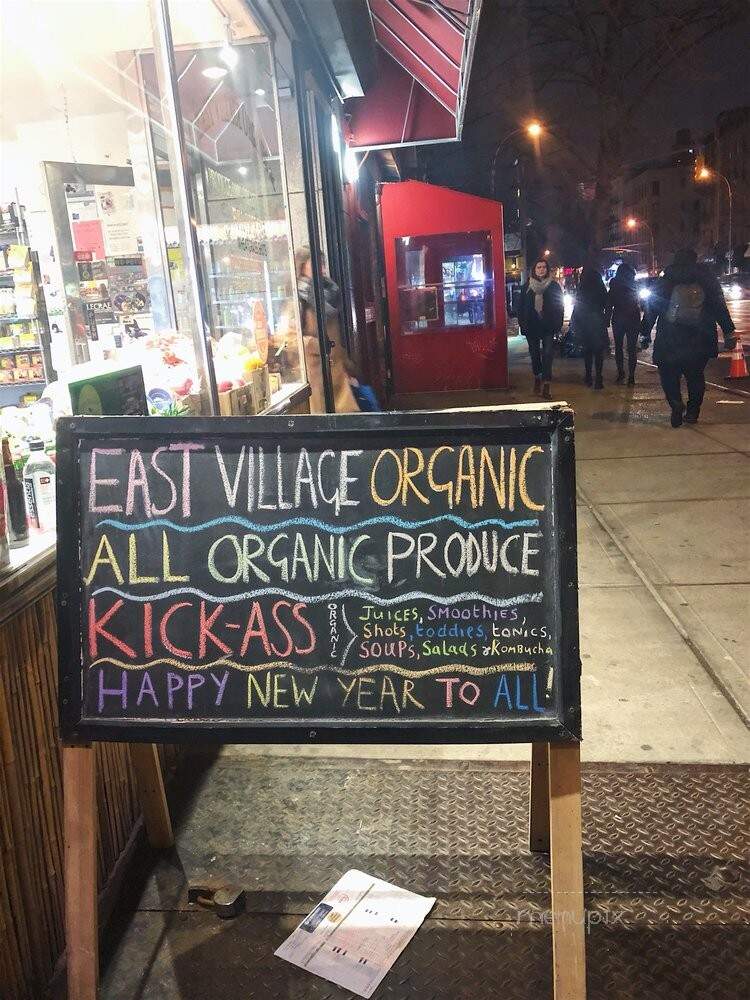 EAST VILLAGE ORGANIC
ALL ORGANIC PRODUCE
KICK-ASS
ORGANIC
JUICES, SMOOTHIES,
Shots, toddies, tonics,
SOUPs, Salads & KOMBUCHA
HAPPY NEW YEAR TO ALL!
menupix
LECRAE